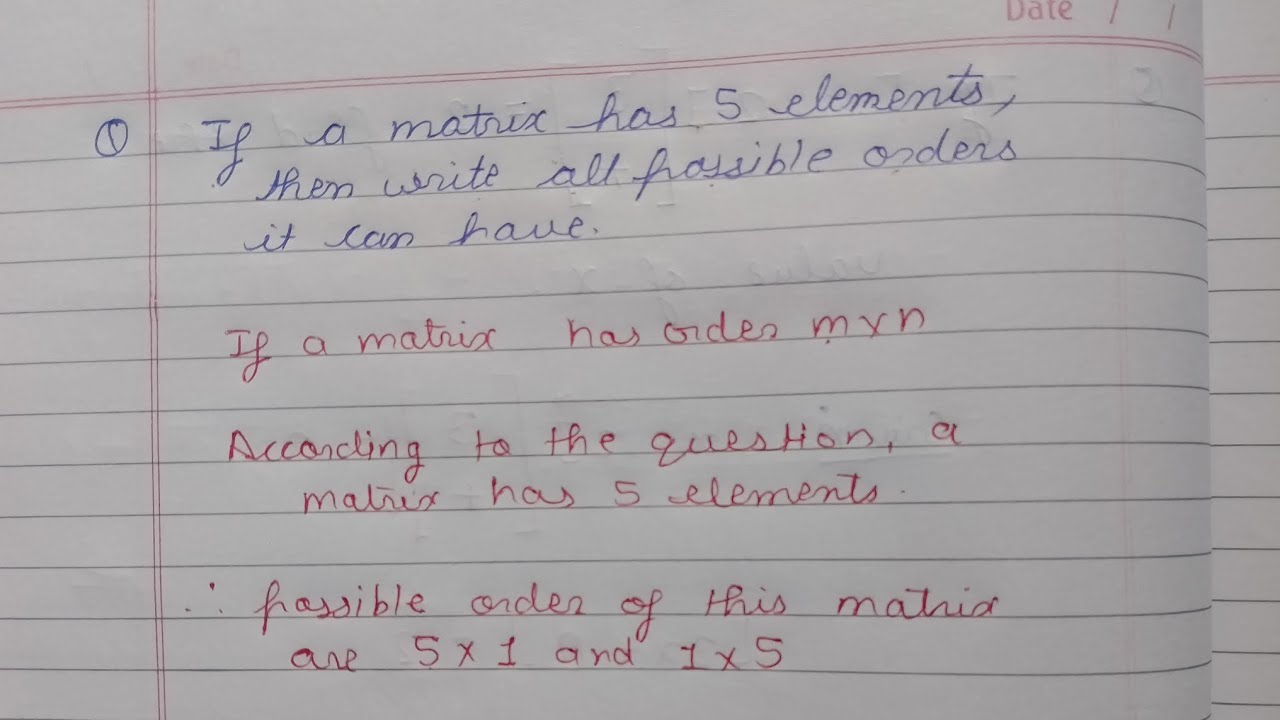 Date / /
① If a matrix has 5 elements,
then write all possible orders
it can have.
If a matrix has order m×n
According to the question, a
matrix has 5 elements.
∴ possible order of this matrix
are 5×1 and 1×5